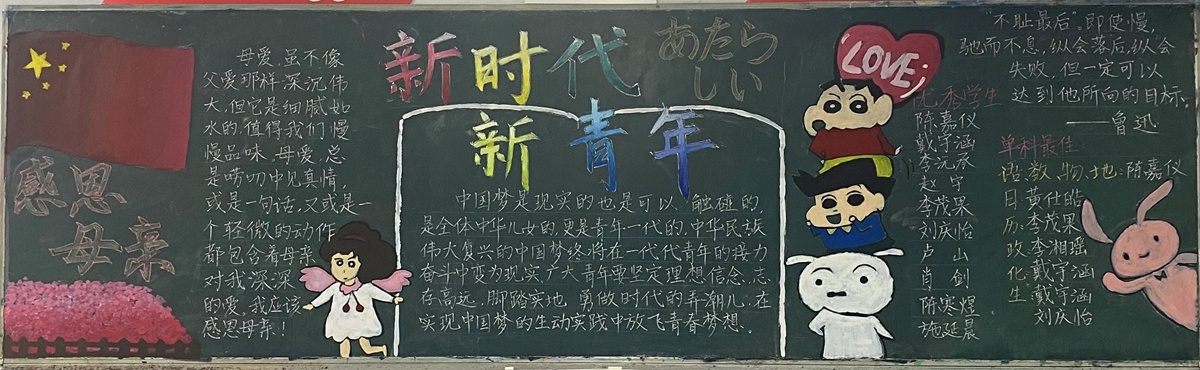 感恩
母亲
母爱,虽不像
父爱那样深沉伟
大,但它是细腻如
水的,值得我们慢
慢品味,母爱,总
是唠叨中见真情,
或是一句话,又或是一
个轻微的动作
都包含着母亲
对我深深
的爱,我应该
感恩母亲!
新时代
あたら
しい
新青年
中国梦是现实的也是可以触碰的,
是全体中华儿女的,更是青年一代的,中华民族
伟大复兴的中国梦终将在一代代青年的接力
奋斗中变为现实,广大青年要坚定理想信念,志
存高远,脚踏实地,勇做时代的弄潮儿,在
实现中国梦的生动实践中放飞青春梦想.
LOVE
“不耻最后”,即使慢,
驰而不息,纵会落后,纵会
失败,但一定可以
达到他所向的目标。
——鲁迅
优秀学生
陈嘉仪
戴宇涵
李沅承
赵宇
李茂果
刘庆怡
卢山
肖剑
陈寒煜
施延晨
单科最佳:
语、数、物、地:陈嘉仪
日 黄仕皓
历:李茂果
政 李湘瑶
化:戴宇涵
生:戴宇涵
刘庆怡